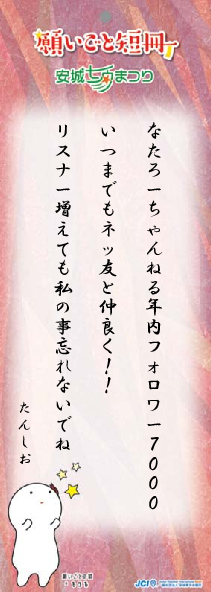 願いごと短冊
安城七夕まつり
なたろーちゃんねる年内フォロワー7000
いつまでもネッ友と仲良く!!
リスナー増えても私の事忘れないでね
たんしお
願いごと短冊
JCI